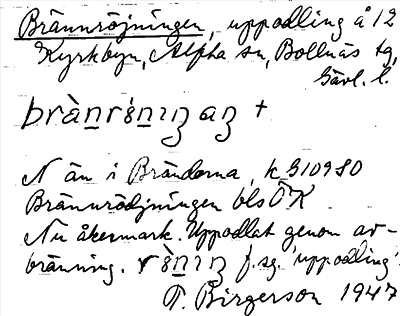 Brännröjningen, uppodling å 12
Kyrkbyn, Alfta sn, Bollnäs tg,
Gävl. l.
bràn̲rö́n̲ıŋaŋ +
N än i Bränderna, k 310980
Brännrödjningen bls ÖK
Nu åkermark. Uppodlat genom av-
bränning. rö̀n̲ıŋ f. sg. 'uppodling'.
T. Birgerson 1947